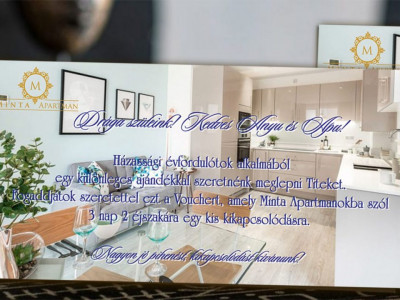 M
MINTA APARTMAN
M
Drága szüleink! Kedves Anyu és Apu!
Házassági évfordulótok alkalmából
egy különleges ajándékkal szeretnénk meglepni Titeket.
Fogadjátok szeretettel ezt a Vouchert, amely Minta Apartmanokba szól
3 nap 2 éjszakára egy kis kikapcsolódásra.
Nagyon jó pihenést, kikapcsolódást kívánunk!